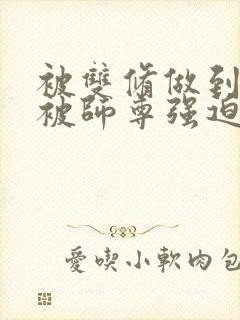 被雙脩做到
被師尊强迫
愛喫小軟肉包